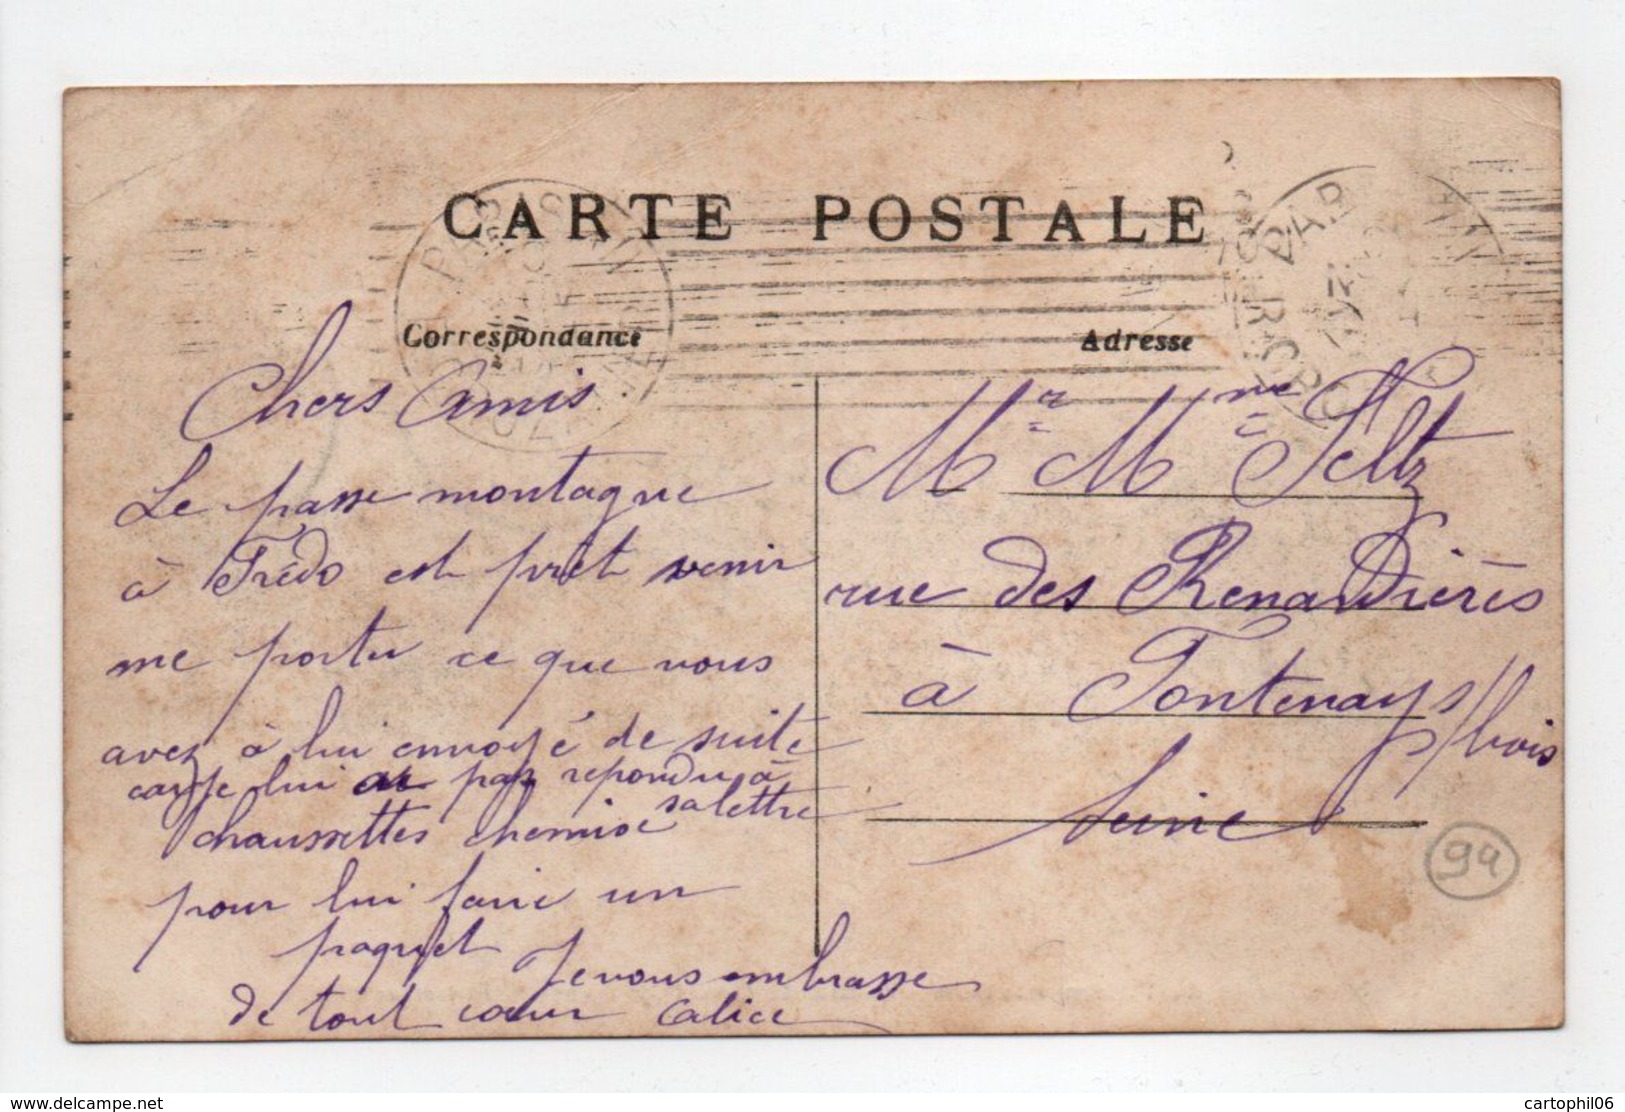 CARTE POSTALE
Correspondance
Adresse
Chers Amis
Le passe montagne
à Frédo est prêt venir
me porter ce que vous
avez à lui envoyé de suite
car je lui ai pas repondu à
sa lettre
chaussettes chemise
pour lui faire un
paquet Je vous embrasse
de tout cœur Alice
Mr Mme Seltz
rue des Renardières
à Fontenays/bois
Seine
94
www.delcampe.net
cartophil06